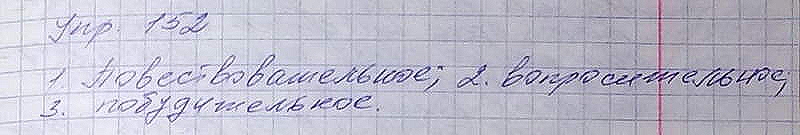 Упр. 152
1. Повествовательное; 2. вопросительное;
3. побудительное.